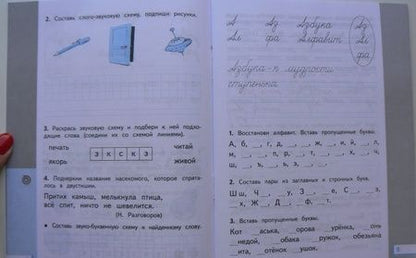 2. Составь слого-звуковую схему, подпиши рисунки.
3. Раскрась звуковую схему и подбери к ней подхо-
дящие слова (соедини их со схемой линиями).
печать читай
э к с к э
якорь живой
4. Подчеркни название насекомого, которое спрята-
лось в двустишии.
Притих камыш, мелькнула птица,
всё спит, ничто не шевелится.
(Н. Разговоров)
• Составь звуко-буквенную схему к найденному слову.
А Аз Азбука Аз
Ал фа Алфавит Ал
фа
Азбука – к мудрости
ступенька
1. Восстанови алфавит. Вставь пропущенные буквы.
2. Составь пары из заглавных и строчных букв.
3. Вставь пропущенные буквы.
Кот __аська, __орова __урёнка, __они
__недой, __обака __ружок, __обезьяна
__ита, __отёнок __ушок.